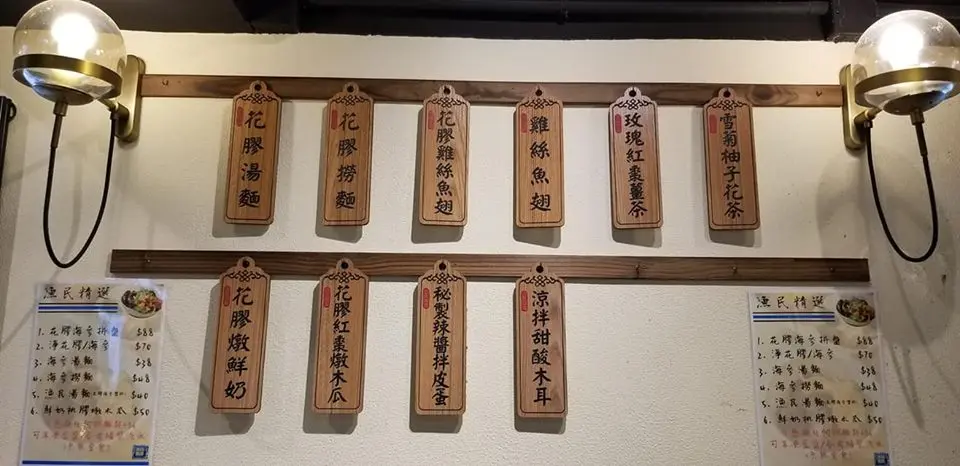 花膠湯麵
花膠撈麵
花膠雞絲魚翅
雞絲魚翅
玫瑰紅棗薑茶
雪菊柚子花茶
花膠燉鮮奶
花膠紅棗燉木瓜
秘製辣醬拌皮蛋
涼拌甜酸木耳
漁民精選
1. 花膠海參拼盤 $88
2. 淨花膠/海參 $70
3. 海參湯麵 $38
4. 海參撈麵 $48
5. 漁民湯麵 $40
6. 鮮奶桃膠燉木瓜 $50
漁民精選
1. 花膠海參拼盤 $88
2. 淨花膠/海參 $70
3. 海參湯麵 $38
4. 海參撈麵 $48
5. 漁民湯麵 $40
6. 鮮奶桃膠燉木瓜 $50